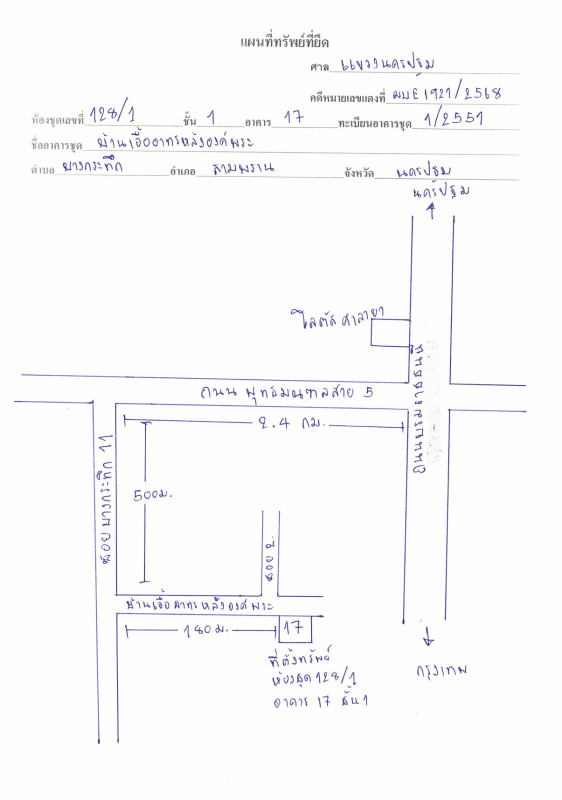 แผนที่ทรัพย์ที่ยึด
ศาล แขวงนครปฐม
คดีหมายเลขแดงที่ ผบE1921/2568
ห้องชุดเลขที่ 128/1 ชั้น 1 อาคาร 17 ทะเบียนอาคารชุด 1/2551
ชื่ออาคารชุด บ้านเอื้ออาทรหลังองค์พระ
ตำบล บางกระทึก อำเภอ สามพราน จังหวัด นครปฐม
นครปฐม
โลตัส ศาลายา
ถนน พุทธมณฑลสาย 5
2.4 กม.
ถนนบรมราชชนนี
ซอย บางกระทึก 11
500 ม.
ซอย 2.
บ้านเอื้ออาทร หลังองค์พระ
180 ม.
17
ที่ตั้งทรัพย์
ห้องชุด 128/1
อาคาร 17 ชั้น 1
กรุงเทพ